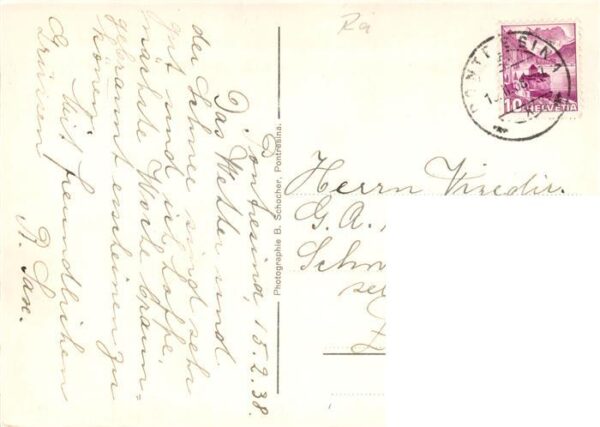 Pontresina, 15.2.38.
Das Wetter und
der Schnee sind sehr
gut und ich hoffe,
nächste Woche braun-
gebrannt erscheinen zu
können.
Mit freundlichen
Grüssen
R. Sax.
Photographie B. Schocher, Pontresina.
Ra
PONTRESINA
10
HELVETIA
Herrn Vizedir.
G.A.
Schw